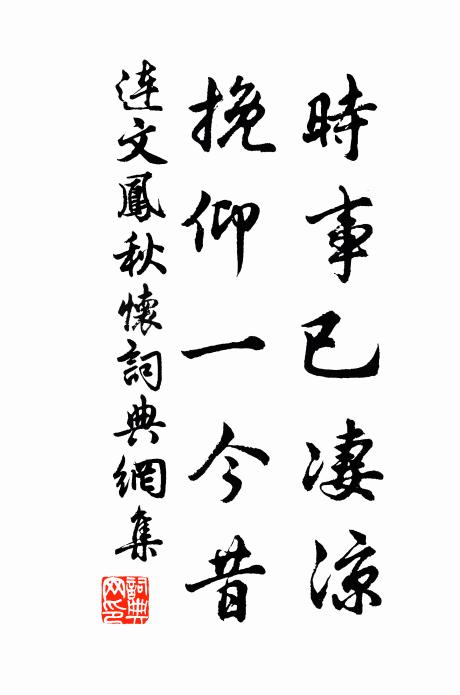 時事已凄涼
挽仰一今昔
連文鳳秋懷詞典網集
詞典网印